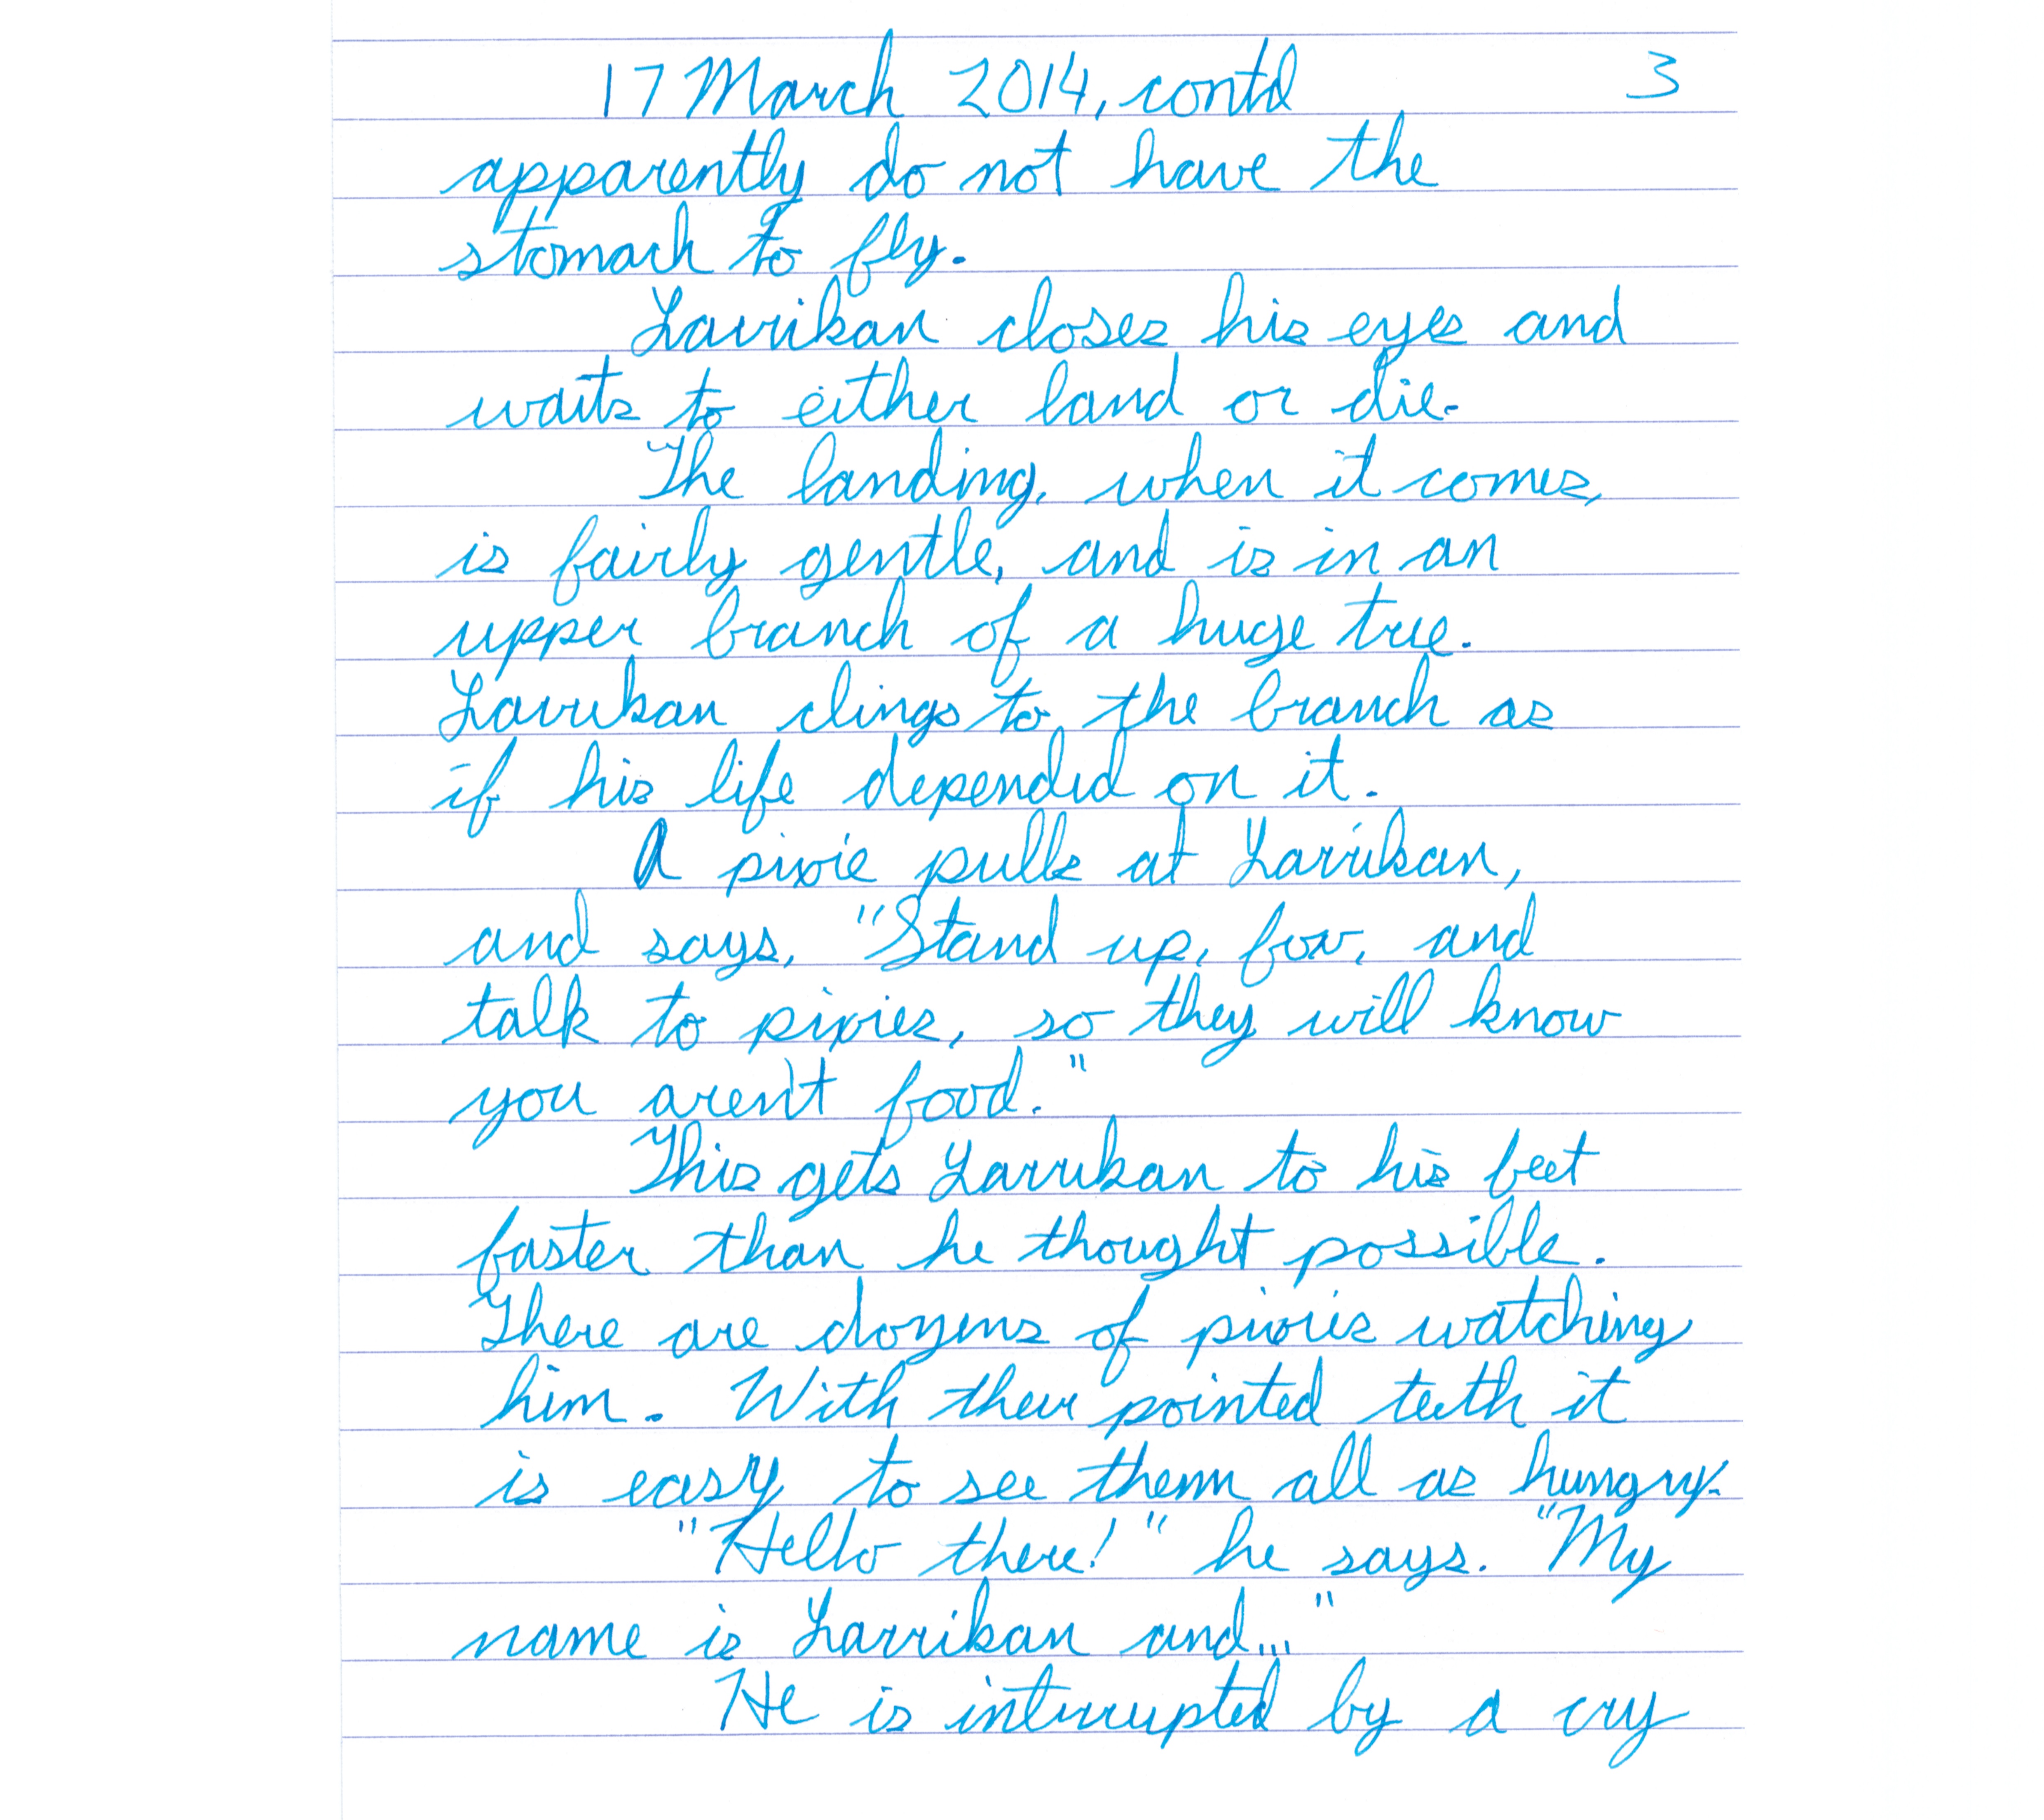 17 March 2014, contd 3
apparently do not have the
stomach to fly.
Larrikan closes his eyes and
waits to either land or die.
The landing, when it comes,
is fairly gentle, and is in an
upper branch of a huge tree.
Larrikan clings to the branch as
if his life depended on it.
A pixie pulls at Larrikan,
and says, "Stand up, fox, and
talk to pixies, so they will know
you aren't food."
This gets Larrikan to his feet
faster than he thought possible.
There are dozens of pixies watching
him. With their pointed teeth it
is easy to see them all as hungry.
"Hello there!" he says. "My
name is Larrikan and..."
He is interrupted by a cry